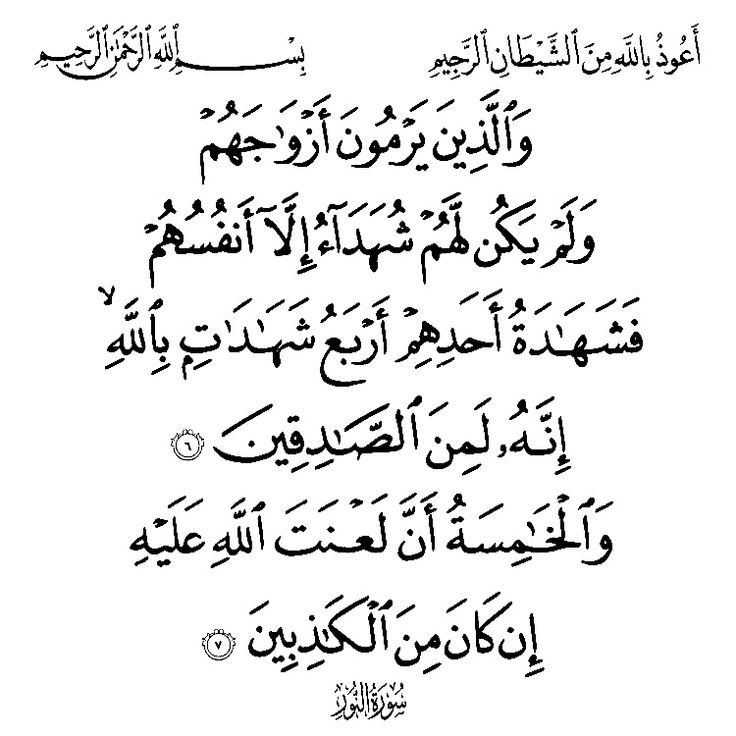 أَعُوذُ بِاللَّهِ مِنَ ٱلشَّيْطَانِ ٱلرَّجِيمِ
بِسْمِ ٱللَّهِ ٱلرَّحْمَٰنِ ٱلرَّحِيمِ
وَٱلَّذِينَ يَرْمُونَ أَزْوَٰجَهُمْ
وَلَمْ يَكُن لَّهُمْ شُهَدَآءُ إِلَّآ أَنفُسُهُمْ
فَشَهَٰدَةُ أَحَدِهِمْ أَرْبَعُ شَهَٰدَٰتٍۭ بِٱللَّهِ ۙ
إِنَّهُۥ لَمِنَ ٱلصَّٰدِقِينَ ٦
وَٱلْخَٰمِسَةُ أَنَّ لَعْنَتَ ٱللَّهِ عَلَيْهِ
إِن كَانَ مِنَ ٱلْكَٰذِبِينَ ٧
سُورَةُ النُّورِ